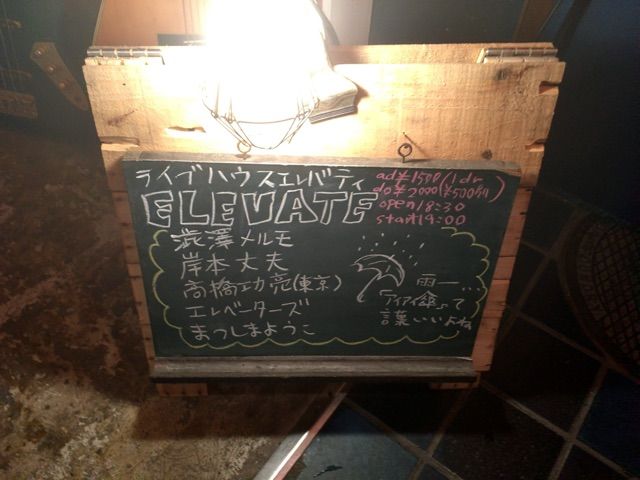 ライブハウスエレバティ
ELEVATE
ad¥1500/1dr
do¥2000(¥500分付)
open18:30
start19:00
澁澤メルモ
岸本丈夫
高橋功亮(東京)
エレベーターズ
まつしまようこ
雨ー…
「アイアイ傘」って
言葉いいよね